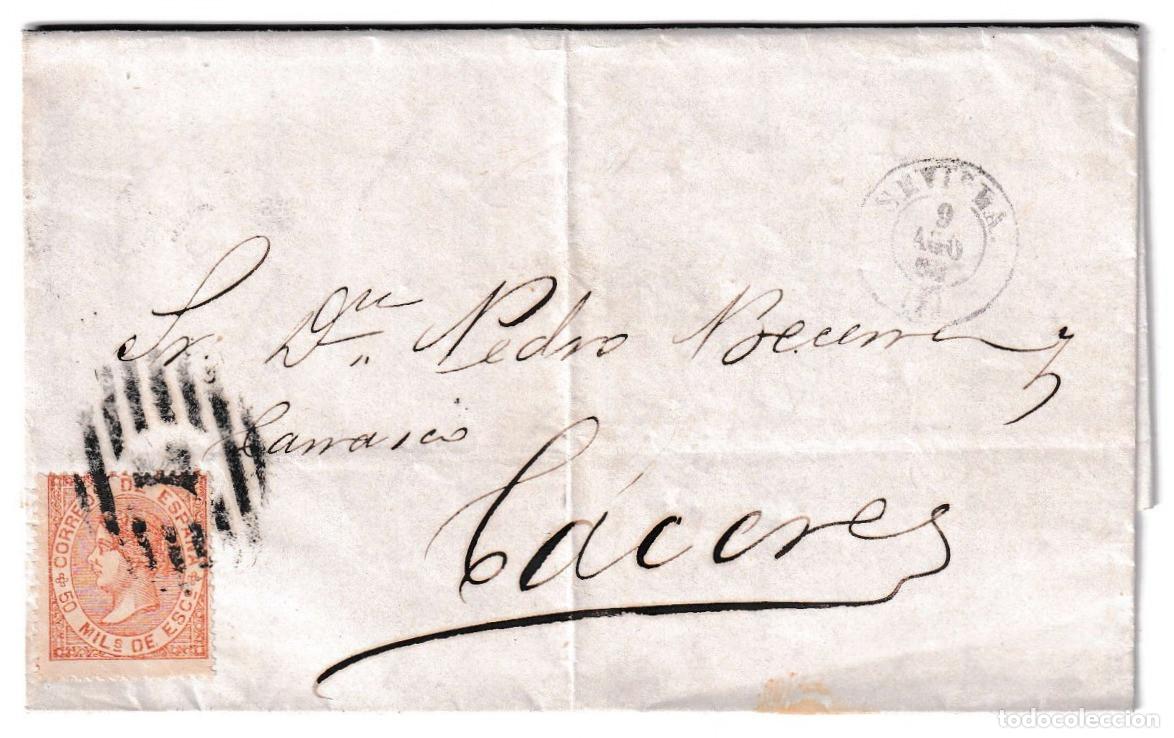 SEVILLA.
9
AGO
Sr. Dn. Pedro Becerra y
Carrasco
Cáceres
CORREOS DE ESPAÑA
50 MILS DE ESCO
todocoleccion